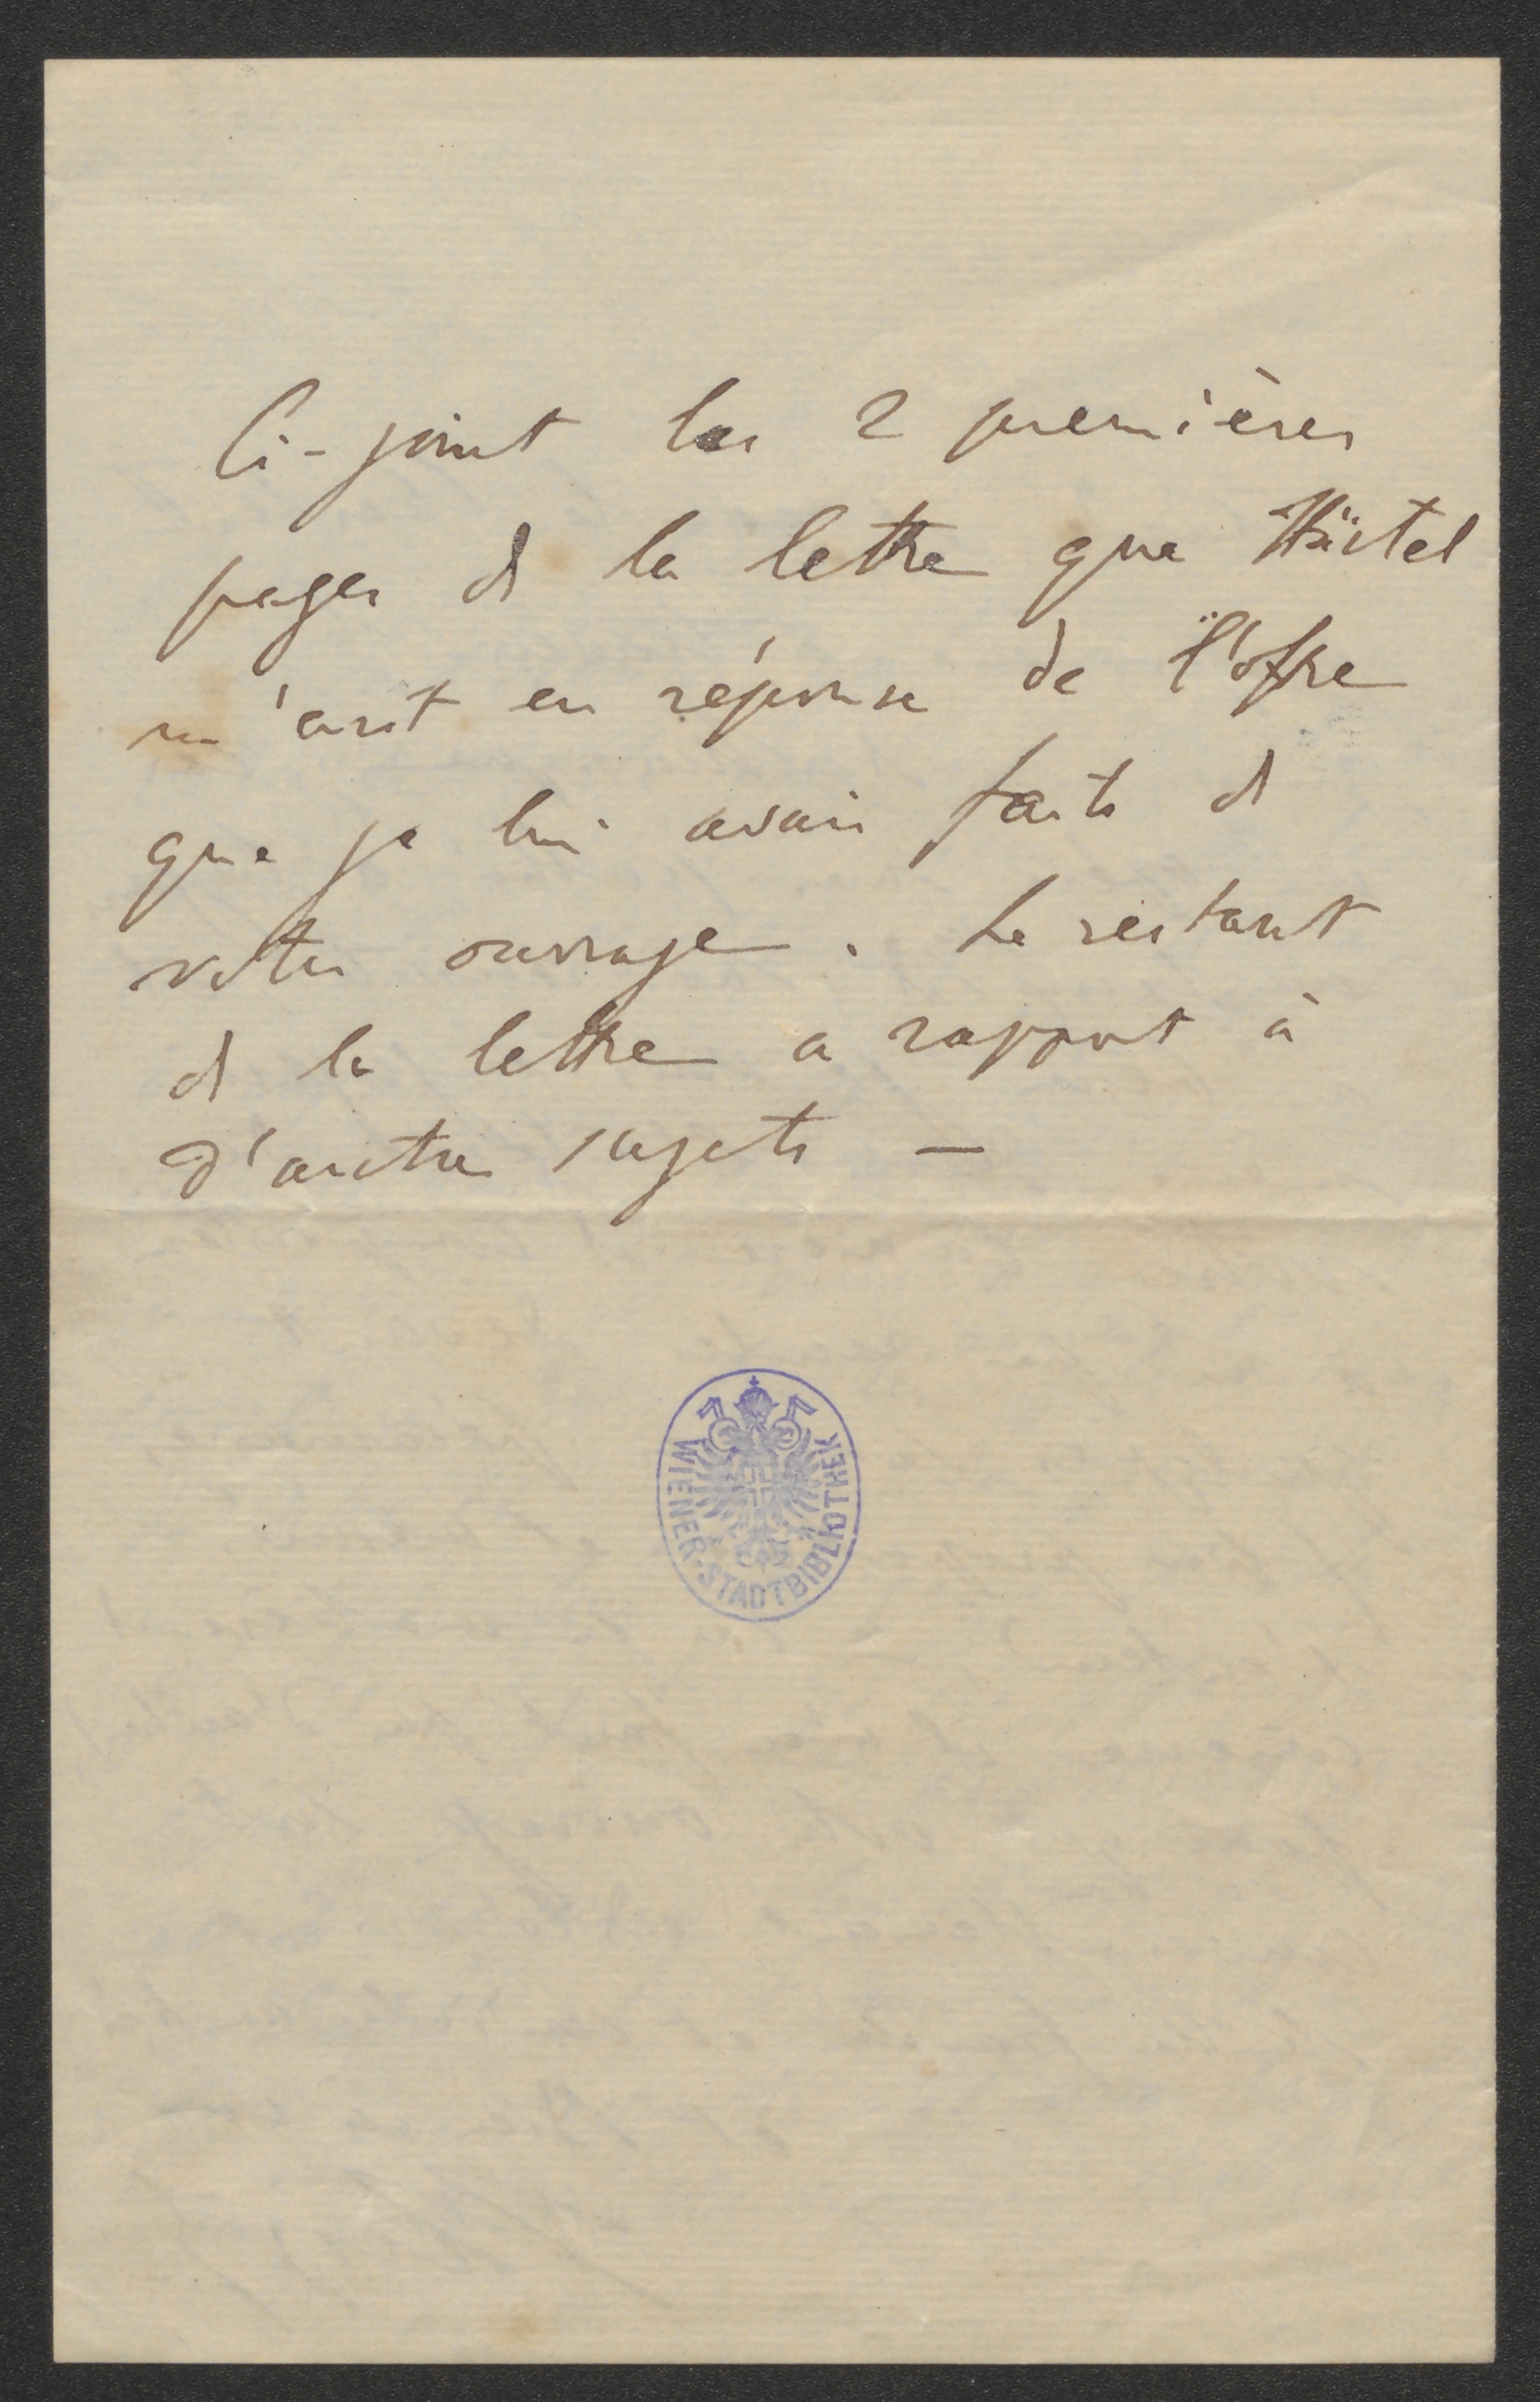 Ci-joint les 2 premières
pages de la lettre que Härtel
m'écrit en réponse de l'offre
que je lui avais faite de
votre ouvrage. Le restant
de la lettre a rapport à
d'autres sujets —
WIENER-STADTBIBLIOTHEK